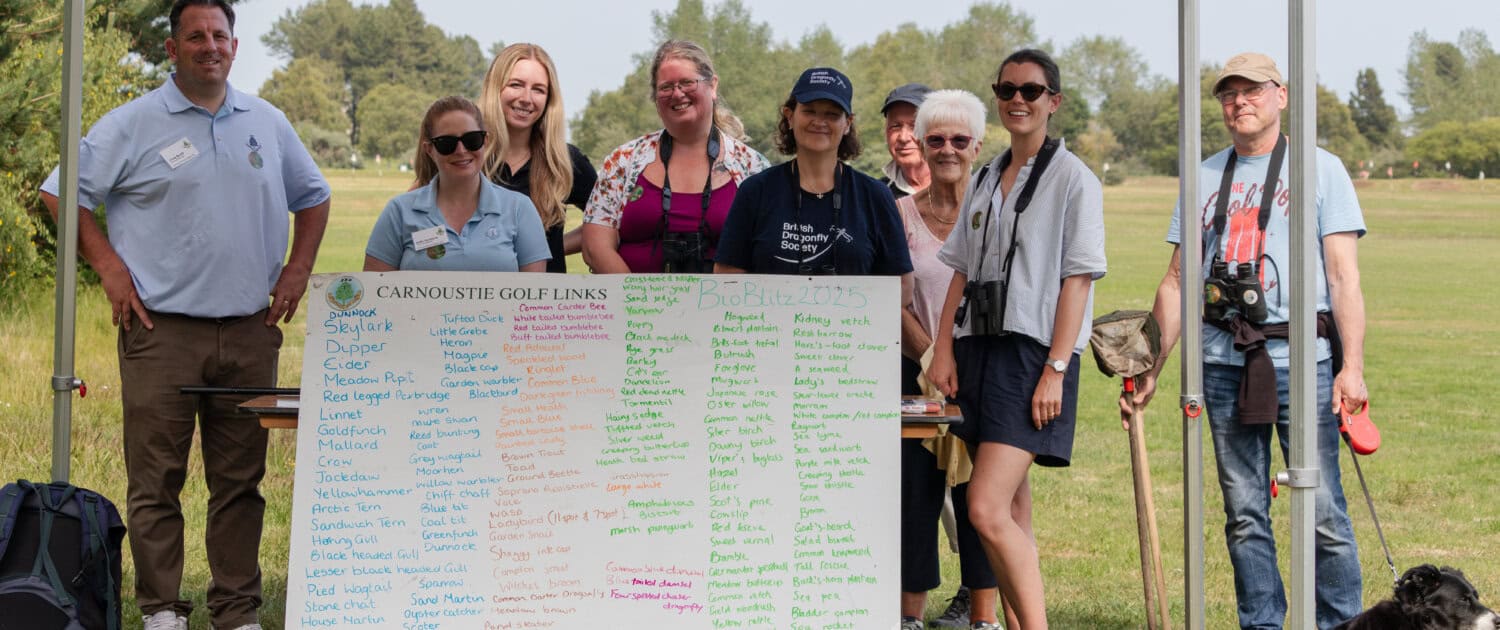 British
Dragonfly
Society
British
Dragonfly
Society
THE
CARNOUSTIE GOLF LINKS
BioBlitz 2025
DUNNOCK
Skylark
Dipper
Eider
Meadow Pipit
Red legged Partridge
Linnet
Goldfinch
Mallard
Crow
Jackdaw
Yellowhammer
Arctic Tern
Sandwich Tern
Herring Gull
Black headed Gull
Lesser black headed Gull
Pied Wagtail
Stone chat
House Martin
Tufted Duck
Little Heron
Magpie
Black cap
Garden warbler
Blackbird
wren
mute Swan
Reed bunting
Coot
Grey wagtail
Moorhen
willow warbler
Chiff chaff
Blue tit
Coal tit
Greenfinch
Dunnock
Sparrow
Sand Martin
Oyster catcher
Scoter
Common Carder Bee
White tailed bumblebee
Red tailed bumblebee
Buff tailed bumblebee
Red Admiral
Speckled wood
Ringlet
Common Blue
Small Heath
Small Blue
Small tortoise shell
Painted Lady
Brown Trout
Toad
Ground Beetle
Soprano Pipistrelle
Vole
Wasp
Ladybird (11 spot & 7 spot)
Garden Snail
Shaggy ink cap
Witches broom
Common Darter Dragonfly
Meadow brown
Pond skater
Large white
Common blue damsel
Blue tailed damsel
Four spotted chaser
dragonfly
Wavy hair grass
Sand sedge
Yarrow
Poppy
Black medick
Rye grass
Barley
Cat's ear
Dandelion
Red dead nettle
Tormentil
Hairy sedge
Tufted vetch
Silver weed
Creeping buttercup
Heath bed straw
Amphibious
Bistort
marsh pennywort
Hogweed
Ribwort plantain
Bird's-foot trefoil
Bulrush
Foxglove
Mugwort
Japanese rose
Osier willow
Common nettle
Silver birch
Downy birch
Viper's bugloss
Hazel
Elder
Scot's pine
Cowslip
Red fescue
Sweet vernal
Bramble
Germander speedwell
Meadow buttercup
Common vetch
Field woodrush
Yellow rattle
Kidney vetch
Rest harrow
Hare's-foot clover
Sweet clover
A seaweed
Lady's bedstraw
Spear-leaved orache
Marram
White campion / red campion
Ragwort
Sea lyme
Sea sandwort
Purple milk vetch
Creeping thistle
Gorse
Goat's-beard
Salad burnet
Common knapweed
Tall fescue
Buck's-horn plantain
Sea pea
Bladder campion
Sea rocket